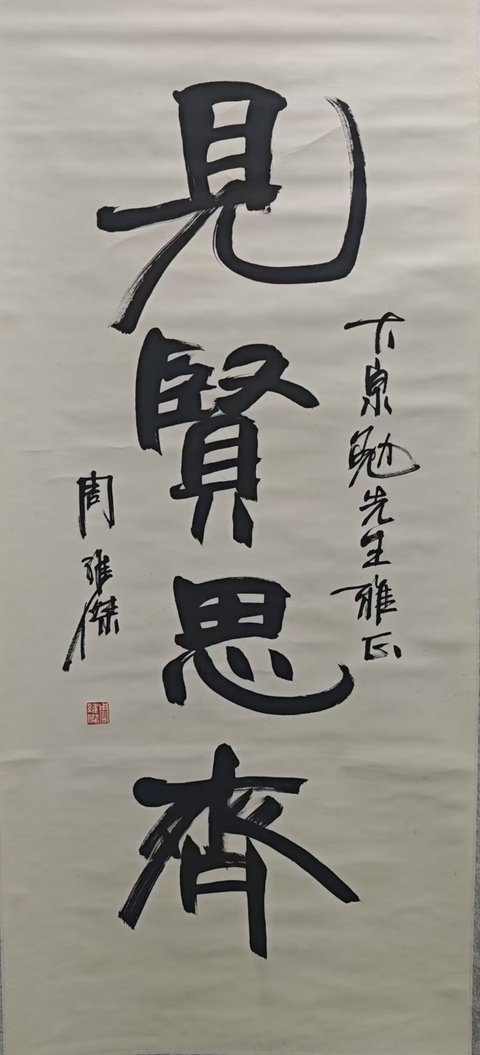 泉勉先生雅正
見賢思齊
周 傑